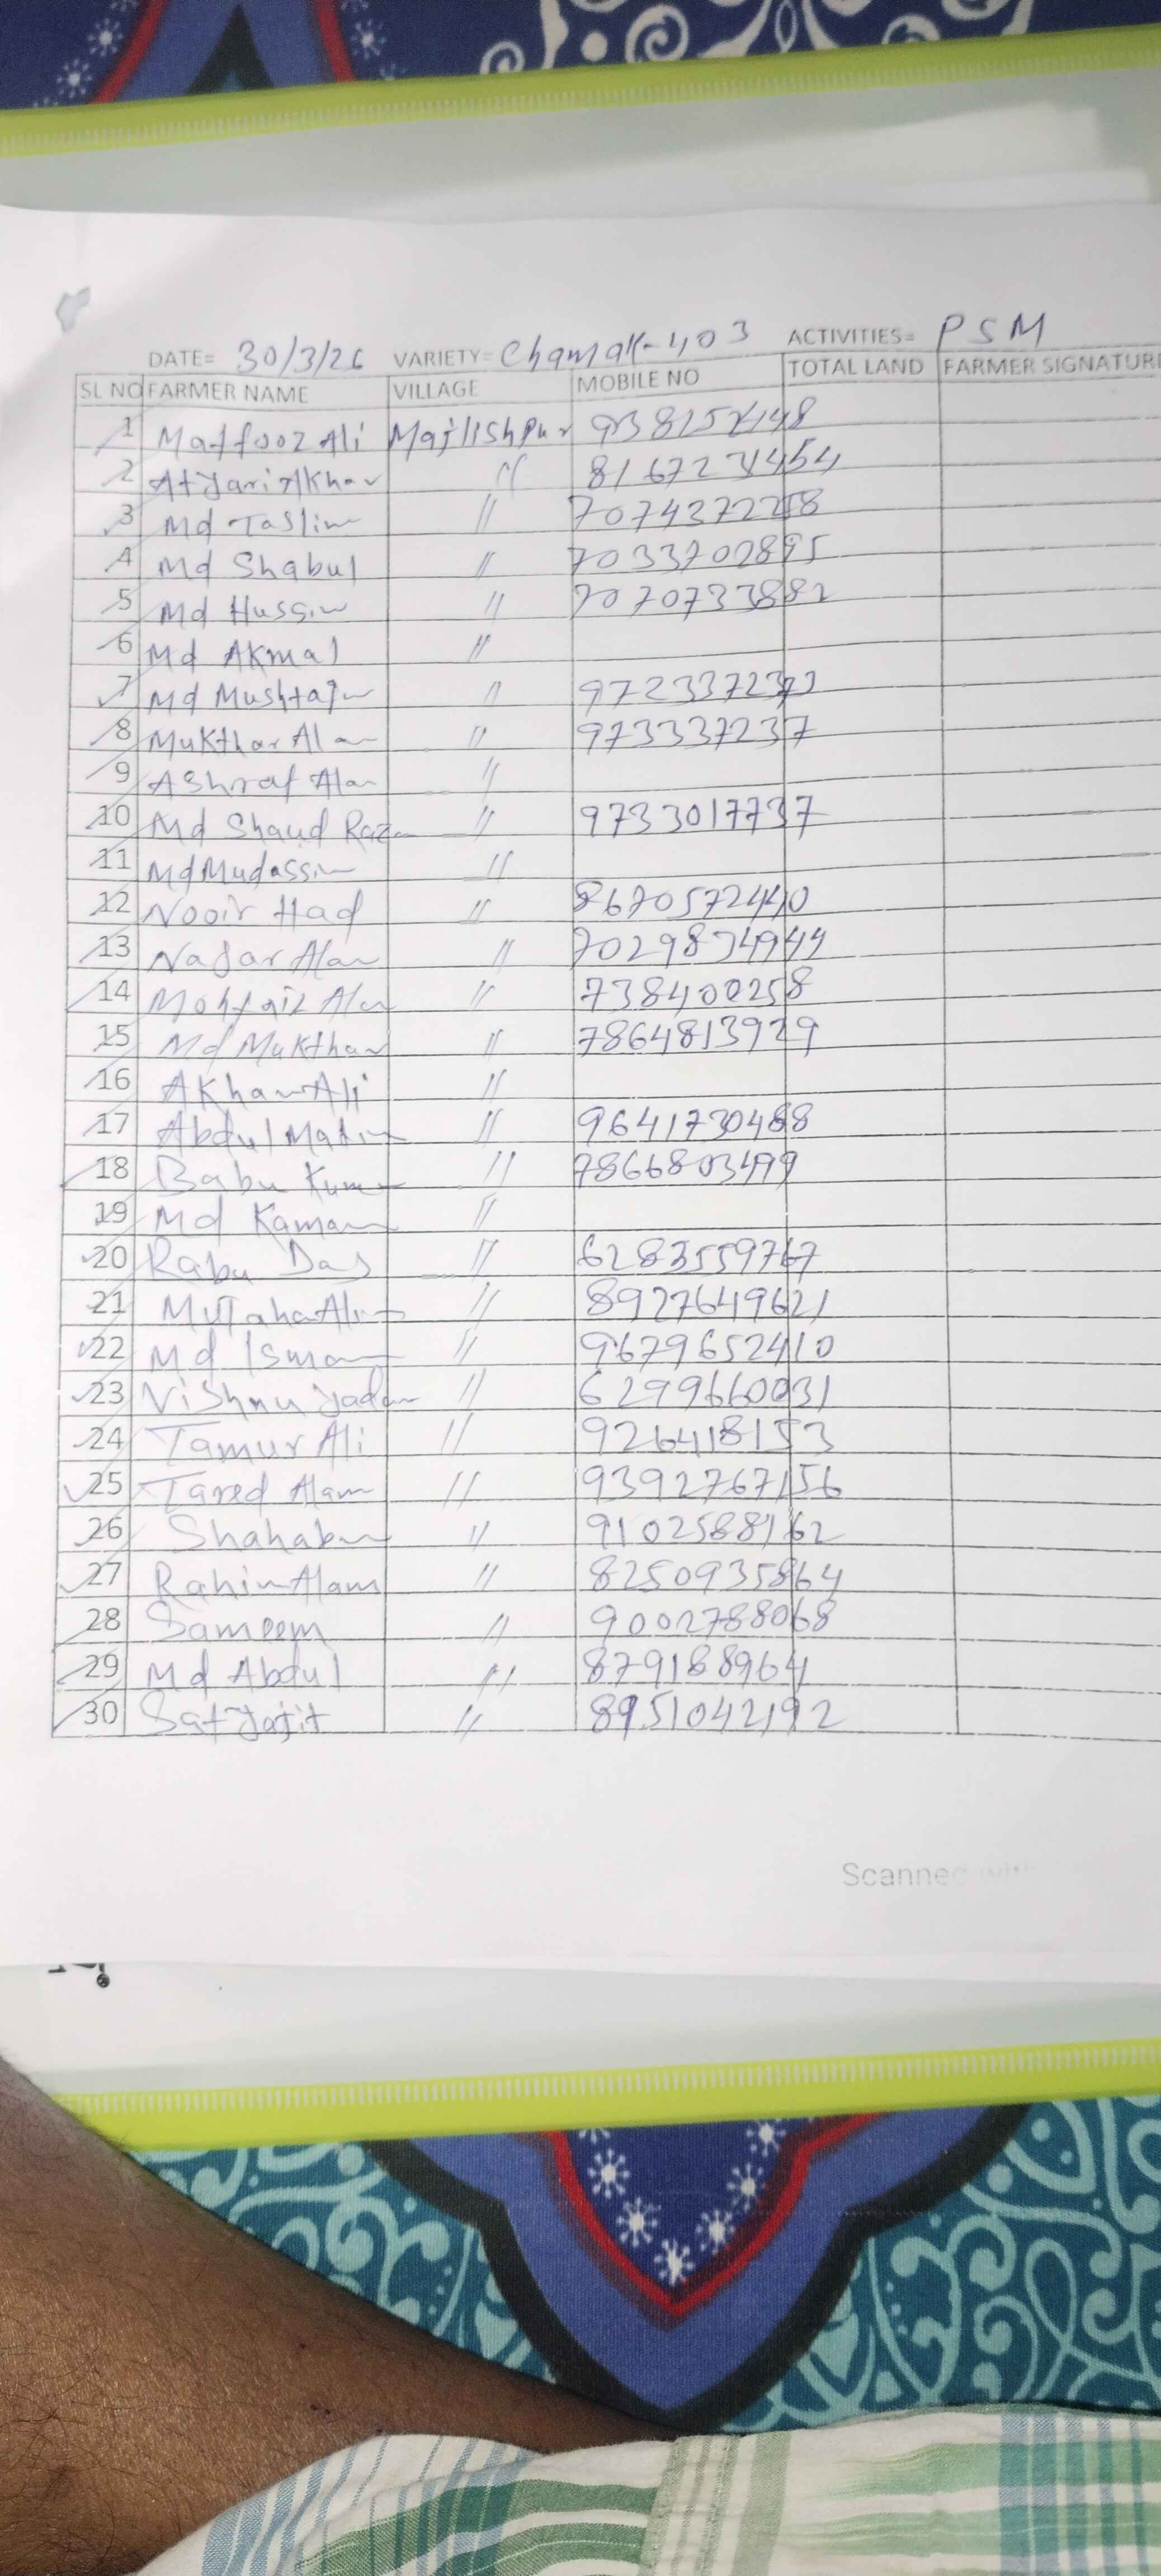 DATE= 30/3/26 VARIETY= Chamak-403 ACTIVITIES= PSM
SL NO FARMER NAME VILLAGE MOBILE NO TOTAL LAND FARMER SIGNATURE
1 Maffooz Ali Majlishpur
2 〃 8167231454
3 Md Taslim 〃 7074372258
4 Md Shabul 〃 7033702895
5 Md Hussin 〃 7070733882
6 Md Akmal 〃
7 Md Mushtaju 〃 9723372373
8 Mukthar Alam 〃 973337237
9 Ashraf Alam 〃
10 Md Shaud Raza 〃 9733017737
11 Md Mudassir 〃
12 Nooir Haq 〃 8670572440
13 Najar Alam 〃 7029874944
14 Mohfaiz Alam 〃 738400258
15 Md Mukthar 〃 7864813929
16 Akhar Ali 〃
17 Abdul Matin 〃 9641730488
18 Babu Kumar 〃 7866803499
19 Md Kamar 〃
20 Rabu Das 〃 6283559767
21 〃 8927649621
22 Md Isman 〃 9679652410
23 Vishnu Yadav 〃 6299660031
24 Tamur Ali 〃 926418153
25 Tared Alam 〃 9392767156
26 Shahabu 〃 9102588162
27 Rahim Alam 〃 8250935864
28 Sameem 〃 9002788068
29 Md Abdul 〃 879188964
30 Satyajit 〃 8951042192
Scanned with